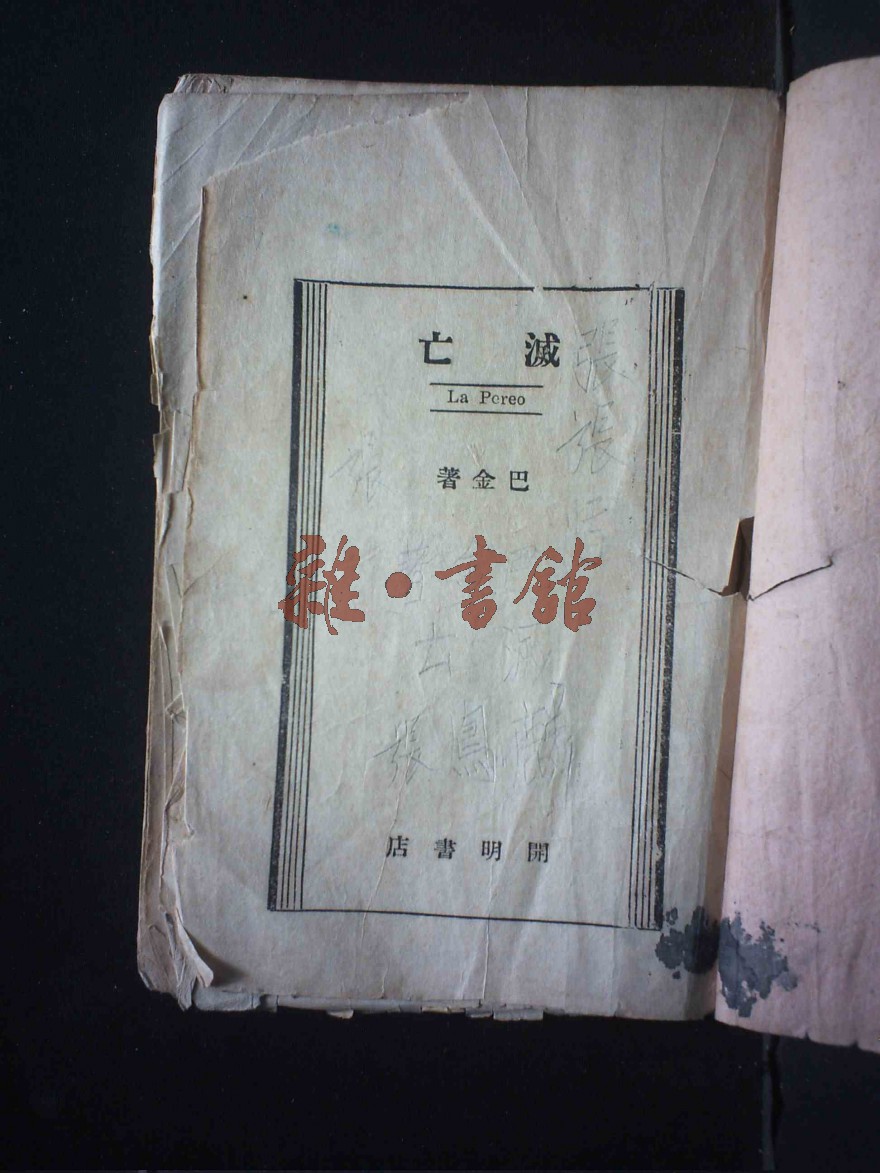 滅亡
La Pereo
巴金著
雜·書館
張
張
張
張鳳
開明書店